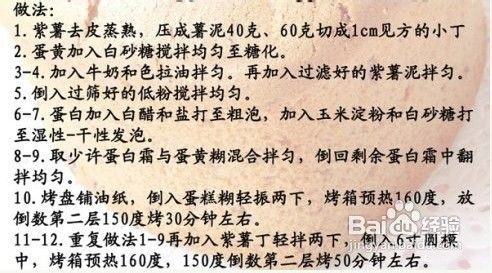 做法：
1. 紫薯去皮蒸熟，压成薯泥40克、60克切成1cm见方的小丁
2. 蛋黄加入白砂糖搅拌均匀至糖化。
3-4. 加入牛奶和色拉油拌匀。再加入过滤好的紫薯泥拌匀。
5. 倒入过筛好的低粉搅拌均匀。
6-7. 蛋白加入白醋和盐打至粗泡，加入玉米淀粉和白砂糖打
至湿性-干性发泡。
8-9. 取少许蛋白霜与蛋黄糊混合拌匀，倒回剩余蛋白霜中翻
拌均匀。
10. 烤盘铺油纸，倒入蛋糕糊轻振两下，烤箱预热160度，放
倒数第二层150度烤30分钟左右。
11-12. 重复做法1-9再加入紫薯丁轻拌两下，倒入6寸圆模
中，烤箱预热160度，150度倒数第二层烤50分钟左右。
Baidu 经验